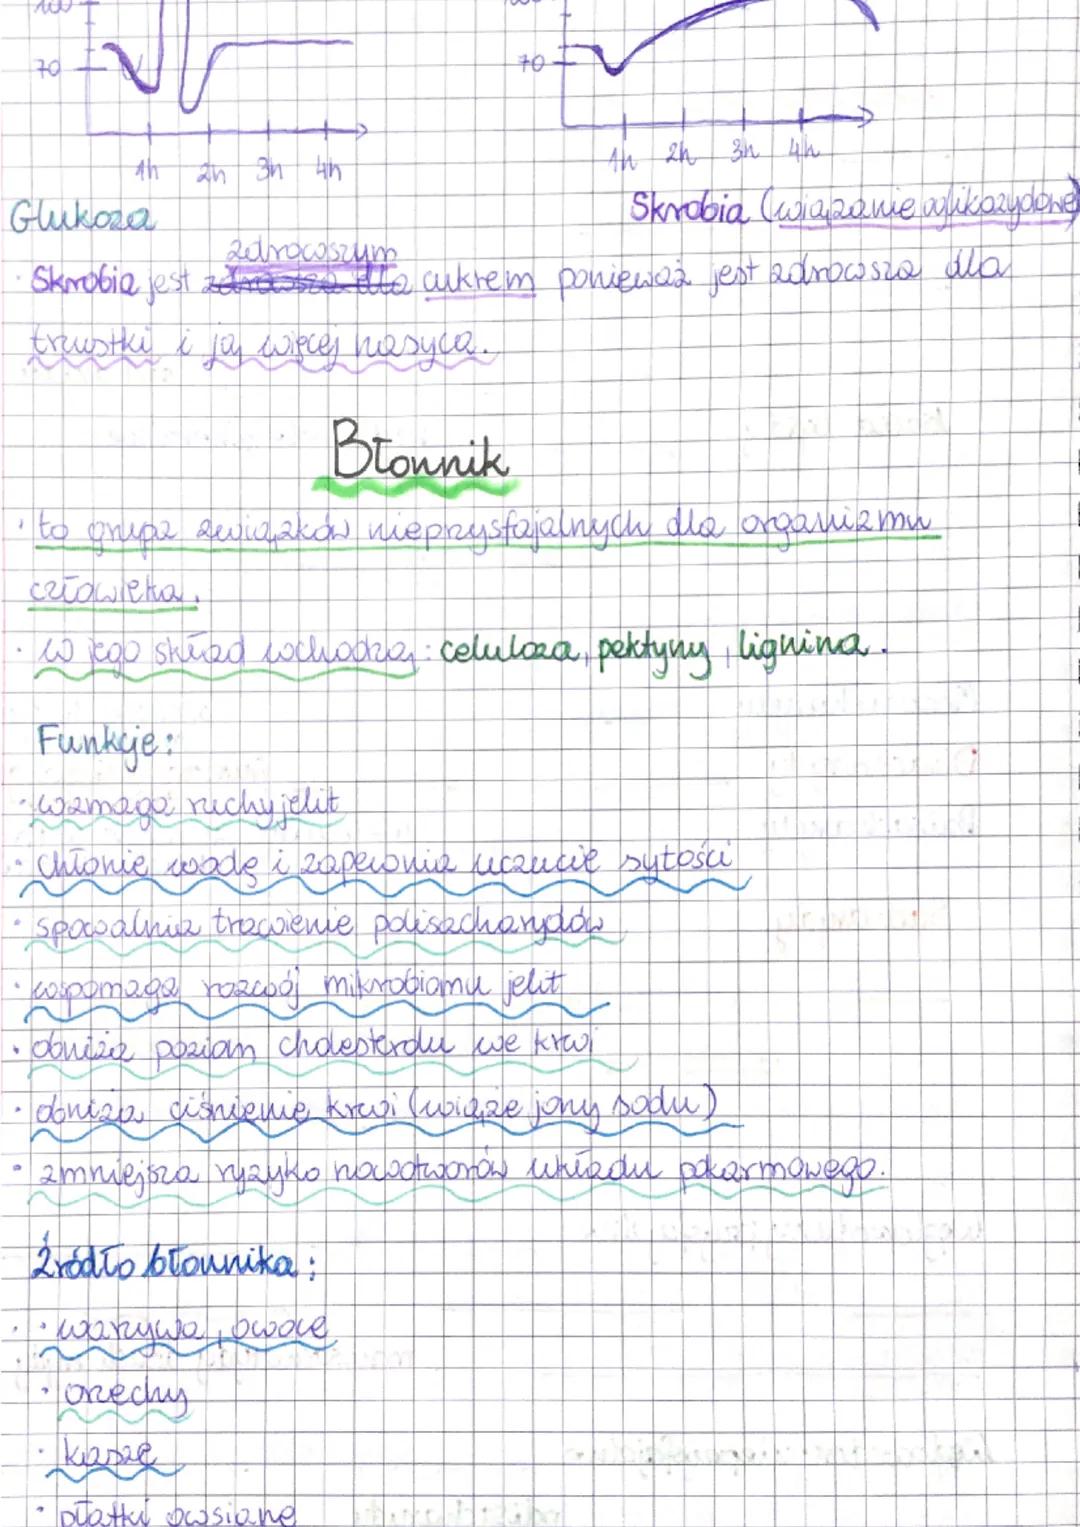 100
70
1h 2h 3h 4h
70
1h 2h 3h 4h
Glukoza
Skrobia (wiązanie α-glikozydowe)
zdrowszym
· Skrobia jest zdrowsza dla cukrem ponieważ jest zdrowsza dla
trzustki i ją więcej nasyca.
Błonnik
· to grupa związków nieprzysfajalnych dla organizmu
człowieka.
· W jego skład wchodzą: celuloza, pektyny, lignina.
Funkcje:
· wzmaga ruchy jelit
· chłonie wodę i zapewnia uczucie sytości
· spowalnia trawienie polisacharydów
· wspomaga rozwój mikrobiomu jelit
· obniża poziom cholesterolu we krwi
· obniża ciśnienie krwi (wiąże jony sodu)
· zmniejsza ryzyko nowotworów układu pokarmowego.
Źródło błonnika:
· warzywa, owoce
· orzechy
· kasze
· płatki owsiane